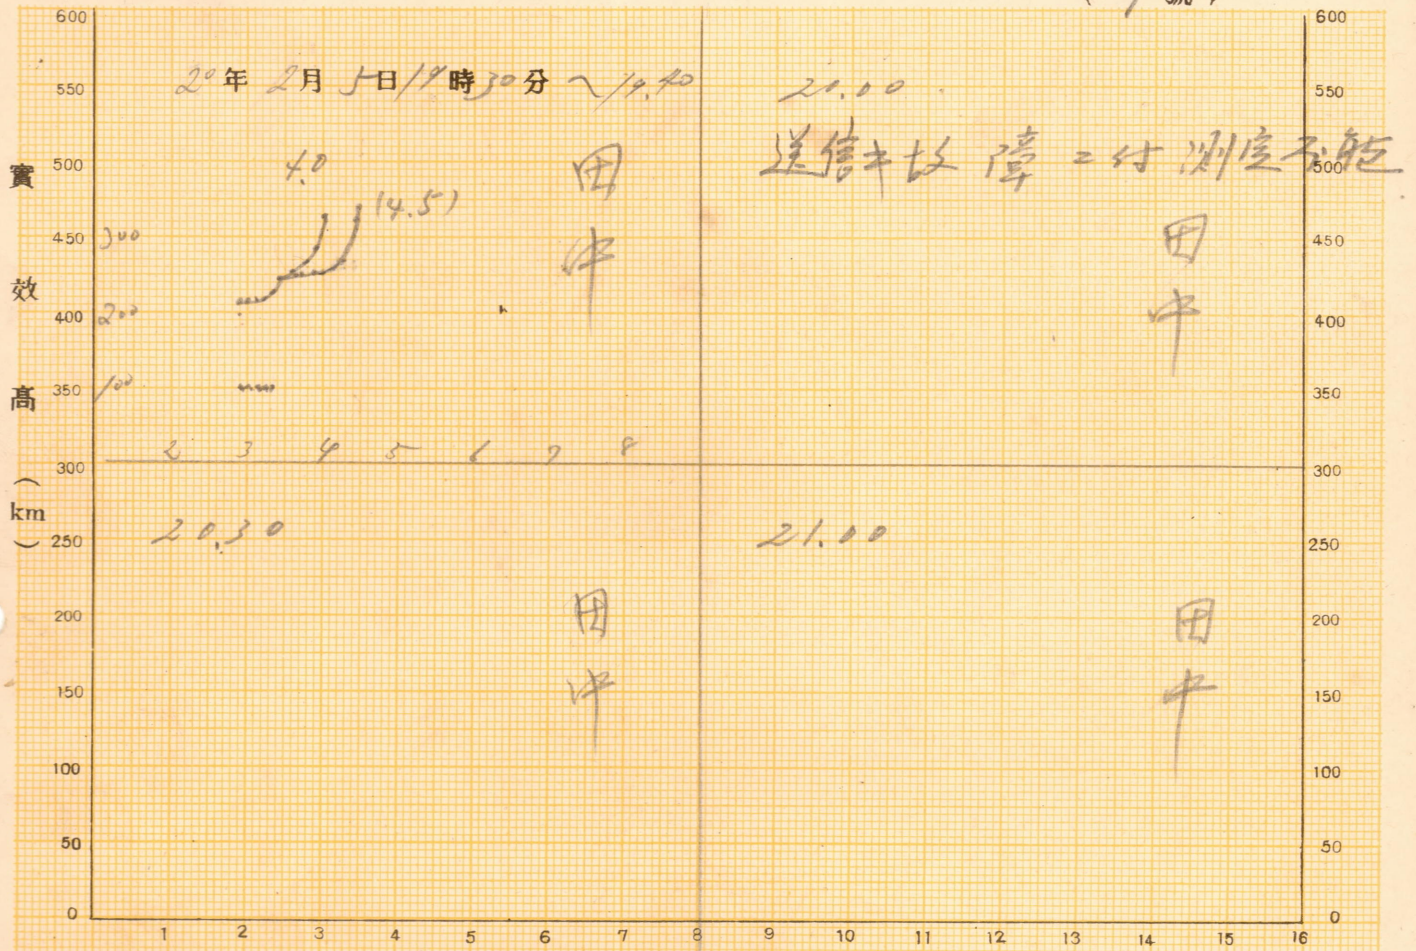 600
550
500
450
400
350
300
250
200
150
100
50
0
實效高(km)
20年2月5日19時30分~19.40
4.0
(4.5)
300
200
100
2 3 4 5 6 7 8
田中
20.00
送信キ故障ニ付測定不能
田中
20.30
田中
21.00
田中
600
550
500
450
400
350
300
250
200
150
100
50
0
1 2 3 4 5 6 7 8 9 10 11 12 13 14 15 16